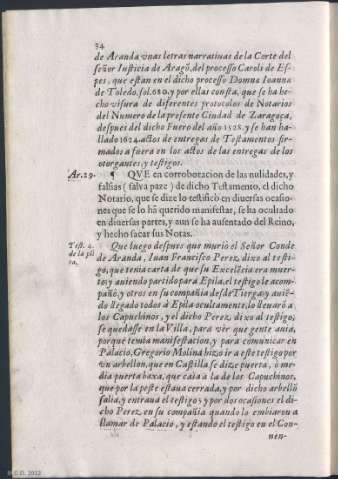 34
de Aranda vnas letras narratiuas de la Corte del
señor Iusticia de Aragõ, del processo Caroli de Es-
pes, que estan en el dicho processo Domna Ioanna
de Toledo, fol. 680. y por ellas consta, que se ha he-
cho visura de diferentes protocolos de Notarios
del Numero de la presente Ciudad de Zaragoça,
despues del dicho Fuero del año 1528. y se han ha-
llado 1624. actos de entregas de Testamentos fir-
mados a fuera en los actos de las entregas de los
otorgantes, y testigos.
Ar. 29. ¶ QVE en corroboracion de las nulidades, y
falsias (salva pace) de dicho Testamento, el dicho
Notario, que se dize lo testificò en diuersas ocasio-
nes que se lo hã querido manifestar, se ha ocultado
en diuersas partes, y aun se ha ausentado del Reino,
y hecho sacar sus Notas.
Test. 4. Que luego despues que murio el Señor Conde
de la plī de Aranda, Iuan Francisco Perez, dixo al testi-
ca, go, que tenia carta de que su Excelēcia era muer-
to, y auiendo partido para Epila, el testigo le acom-
pañò, y otros en su compañia desde Tierga, y auiē-
do llegado todos a Epila ocultamente, lo lleuarõ a
los Capuchinos, y el dicho Perez, dixo al testigo,
se quedasse en la Villa, para vèr que gente auia,
porque temia manifestacion, y para comunicar en
Palacio, Gregorio Molina hizo ir a este testigo por
vn arbellon, que en Castilla se dize puerta, ò me-
dia puerta baxa, que caia a la de los Capuchinos,
que por la peste estaua cerrada, y por dicho arbellõ
salia, y entraua el testigo; y por dos ocasiones el di-
cho Perez, en su compañia quando lo embiaron a
llamar de Palacio, y estando el testigo en el Con-
uen-